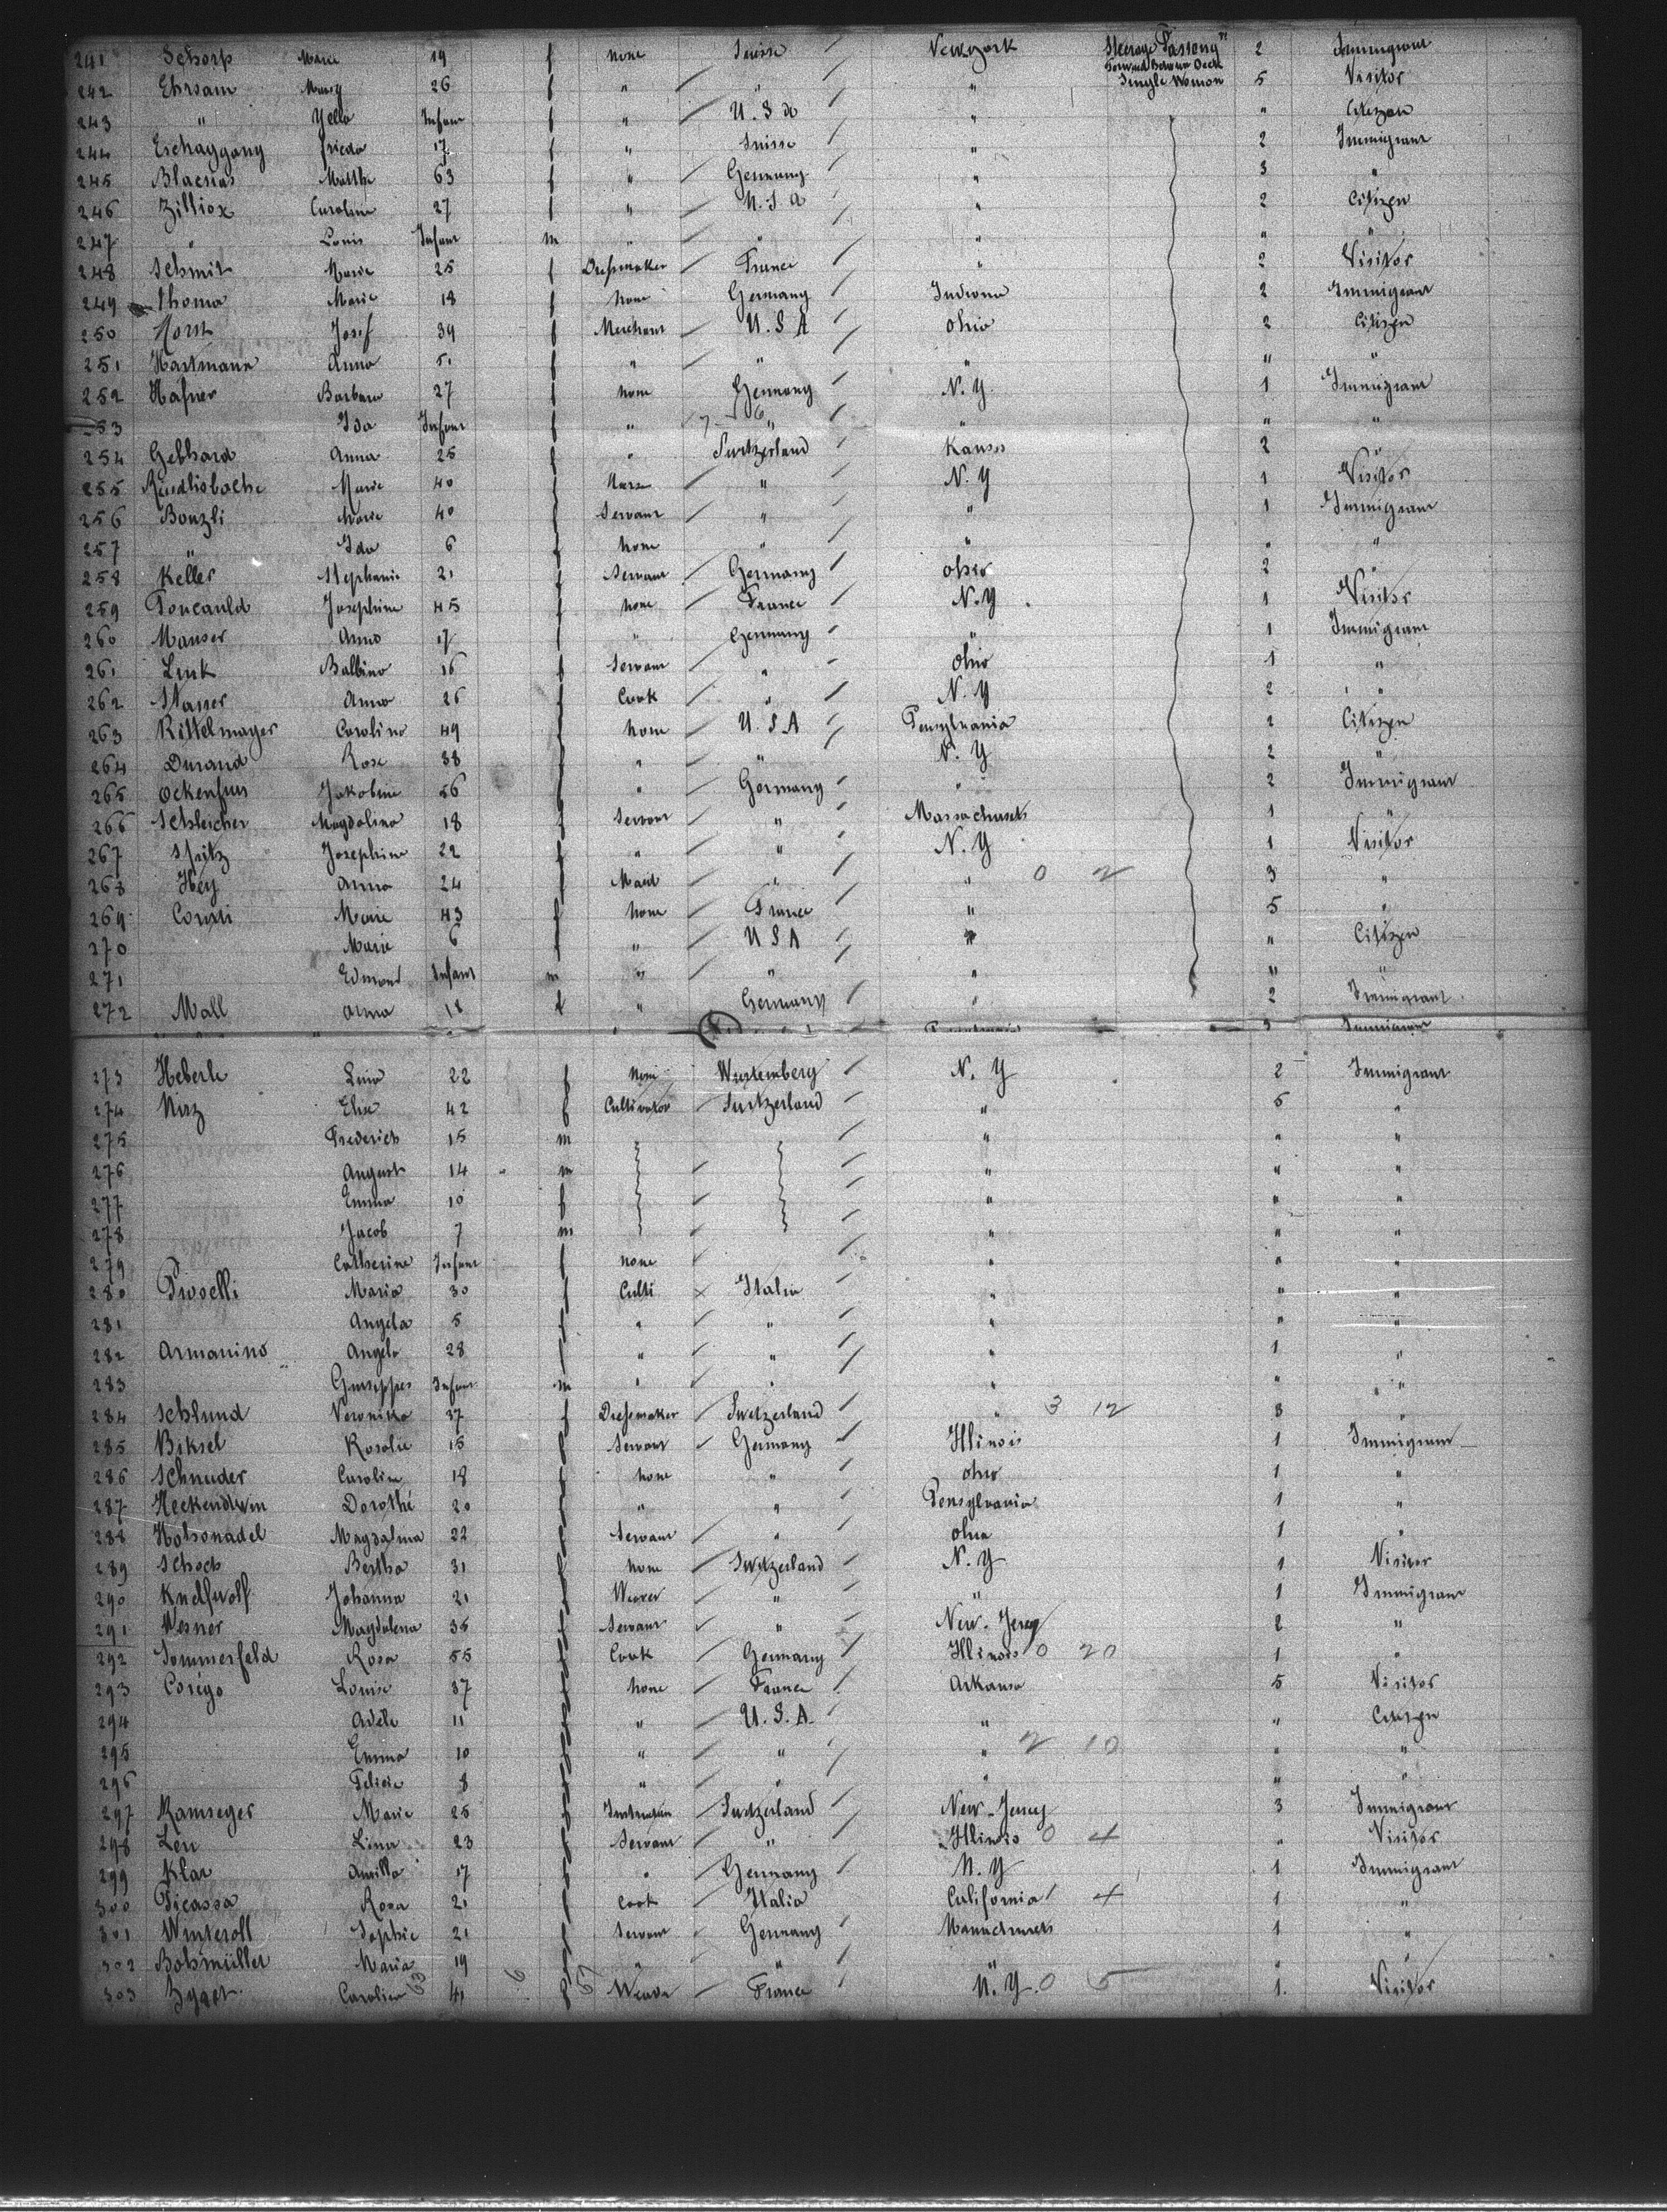 241 Schorp Marie 19 f none Suisse / Newyork Steerage Passeng" 2 Immigrant
Forward Between Deck
242 Ehrsam Mary 26 f " " / " Single Women 5 Visitor
243 " Yella Infant f " / U.S.a / " " Citizen
244 Frieda 17 f " / Suisse / " 2 Immigrant
245 Blaesius 63 f " / Germany / " 3 "
246 Zilliox Caroline 27 f " / U.S.a / " 2 Citizen
247 " Louis Infant m " / " / " " "
248 Schmit Marie 25 f Dressmaker / France / " 2 Visitor
249 Thoma Marie 18 f None / Germany / Indiana 2 Immigrant
250 Horst Josef 39 f Merchant / U.S.A / Ohio 2 Citizen
251 Hartmann Anna 51 f " / " / " " "
252 Hafner Barbara 27 f none / Germany / N.Y. 1 Immigrant
253 Ida Infant f " " / " " "
254 Gebhard Anna 25 f " / Switzerland / Kansas 2 "
255 Marie 40 f Nurse / " / N.Y 1 Visitor
256 Marie 40 f Servant / " / " 1 Immigrant
257 " Ida 6 f none / " / " " "
258 Keller Stephanie 21 f Servant / Germany / Ohio 2 "
259 Foucauld Josephine 45 f None / France / N.Y. 1 Visitor
260 Manser Anna 17 f " / Germany / " 1 Immigrant
261 Link Balbina 16 f Servant / " / Ohio 1 "
262 Anna 26 f Cook / " / N.Y 2 "
263 Rittelmayer Carolina 49 f None / U.S.A / Pensylvania 2 Citizen
264 Durand Rose 38 f " / " / N.Y 2 "
265 Ockenfuss Jakobine 56 f " / Germany / " 2 Immigrant
266 Schleicher Magdalina 18 f Servant / " / Massachusets 1 "
267 Spitz Josephine 22 f " / " / N.Y 1 Visitor
268 Hey Anna 24 f Maid / " / " 0 2 3 "
269 Marie 43 f None / France / " 5 "
270 Marie 6 f " / U S A / " " Citizen
271 Edmond Infant m " / " / " " "
272 Mall Anna 18 f " Germany / " 2 Immigrant
273 Heberle Lina 22 f None / Wurtemberg / N.Y 2 Immigrant
274 Elise 42 f Cultivator / Switzerland / " 5 "
275 Frederich 15 m / " " "
276 August 14 m / / " " "
277 Emma 10 f / / " " "
278 Jacob 7 m / / " " "
279 Catherine Infant f None / / " " "
280 Maria 30 f Culti x Italia / " " "
281 Angela 5 f " / " / " " "
282 Armanino Angela 28 f " / " / " 1 "
283 Guiseppe Infant m " / " / " " "
284 Schlund Veronika 37 f Dressmaker / Switzerland / " 3 12 3 "
285 Biksel Rosalie 15 f Servant / Germany / Illinois 1 Immigrant
286 Schnuder Caroline 18 f None / " / Ohio 1 "
287 Dorothé 20 f " / " / Pensylvania 1 "
288 Magdalena 22 f Servant / " / Ohio 1 "
289 Schoch Bertha 31 f None / Switzerland / N.Y 1 Visitor
290 Knellwolf Johanna 21 f Weaver / " / " 1 Immigrant
291 Magdalena 35 f Servant / " / New-Jersey 2 "
292 Sommerfeld Rosa 55 f Cook / Germany / Illinois 0 20 1 "
293 Louise 37 f None / France / Arkansa 5 Visitor
294 Adèle 11 f " / U.S.A. / " " Citizen
295 Emma 10 f " / " / " 2 10 " "
296 Felicie 8 f " / " / " " "
297 Ramseyer Marie 25 f / Switzerland / New-Jersey 3 Immigrant
298 Lina 23 f Servant / " / Illinois 0 4 " Visitor
299 Klar 17 f " / Germany / N.Y 1 Immigrant
300 Picassa Rosa 21 f Cook / Italia / California 1 4 1 "
301 Winteroll Sophie 21 f Servant / Germany / 1 "
302 Maria 19 f " / " / " " "
303 Caroline 41 f Weaver / France / N.Y. 0 5 1. Visitor